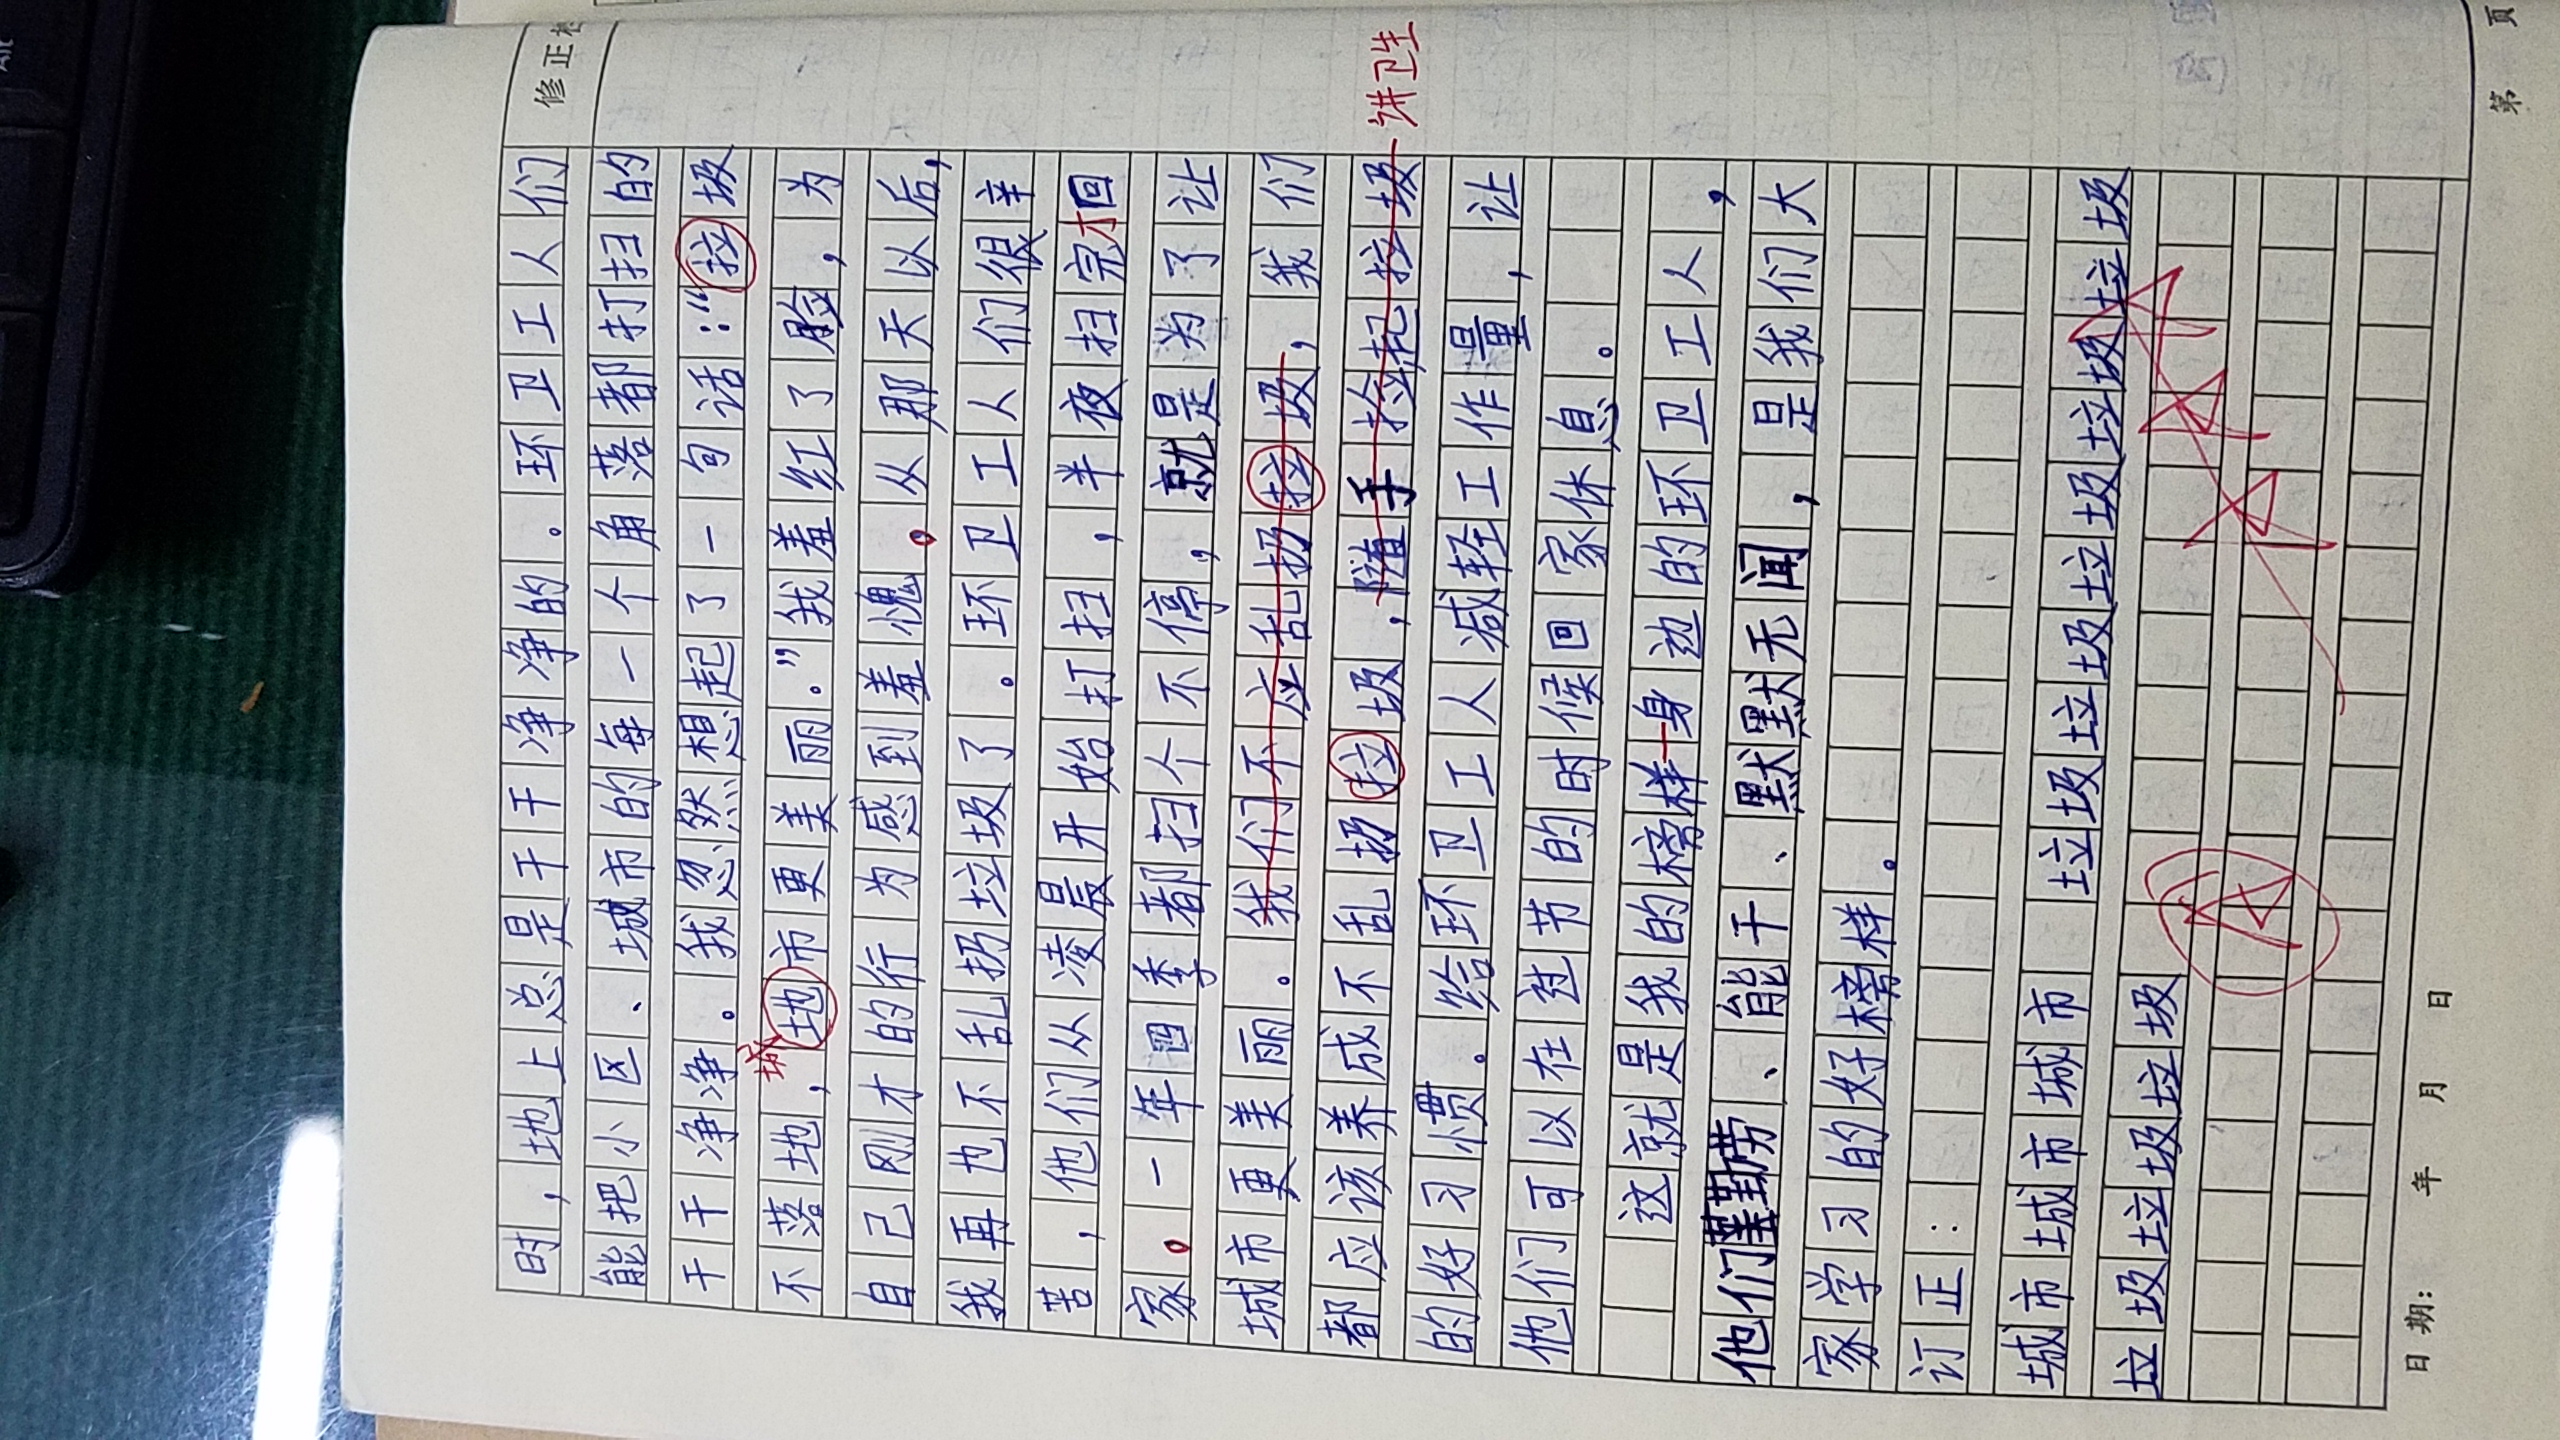 修正栏
时，地上总是干干净净的。环卫工人们
能把小区、城市的每一个角落都打扫的
干干净净。我忽然想起了一句话：“拉圾
不落地，地市更美丽。”我羞红了脸，为
城
自己刚才的行为感到羞愧。从那天以后，
我再也不乱扔垃圾了。环卫工人们很辛
苦，他们从凌晨开始打扫，半夜扫完才回
家。一年四季都扫个不停，就是为了让
城市更美丽。我们不应乱扔拉圾，我们
都应该养成不乱扔拉圾，随手捡起拉圾
讲卫生
的好习惯。给环卫工人减轻工作量，让
他们可以在过节的时候回家休息。
这就是我的榜样—身边的环卫工人，
他们勤劳、能干、默默无闻，是我们大
家学习的好榜样。
订正：
城市城市城市 垃圾垃圾垃圾垃圾垃圾
垃圾垃圾垃圾
日期： 年 月 日
第 頁
Alt